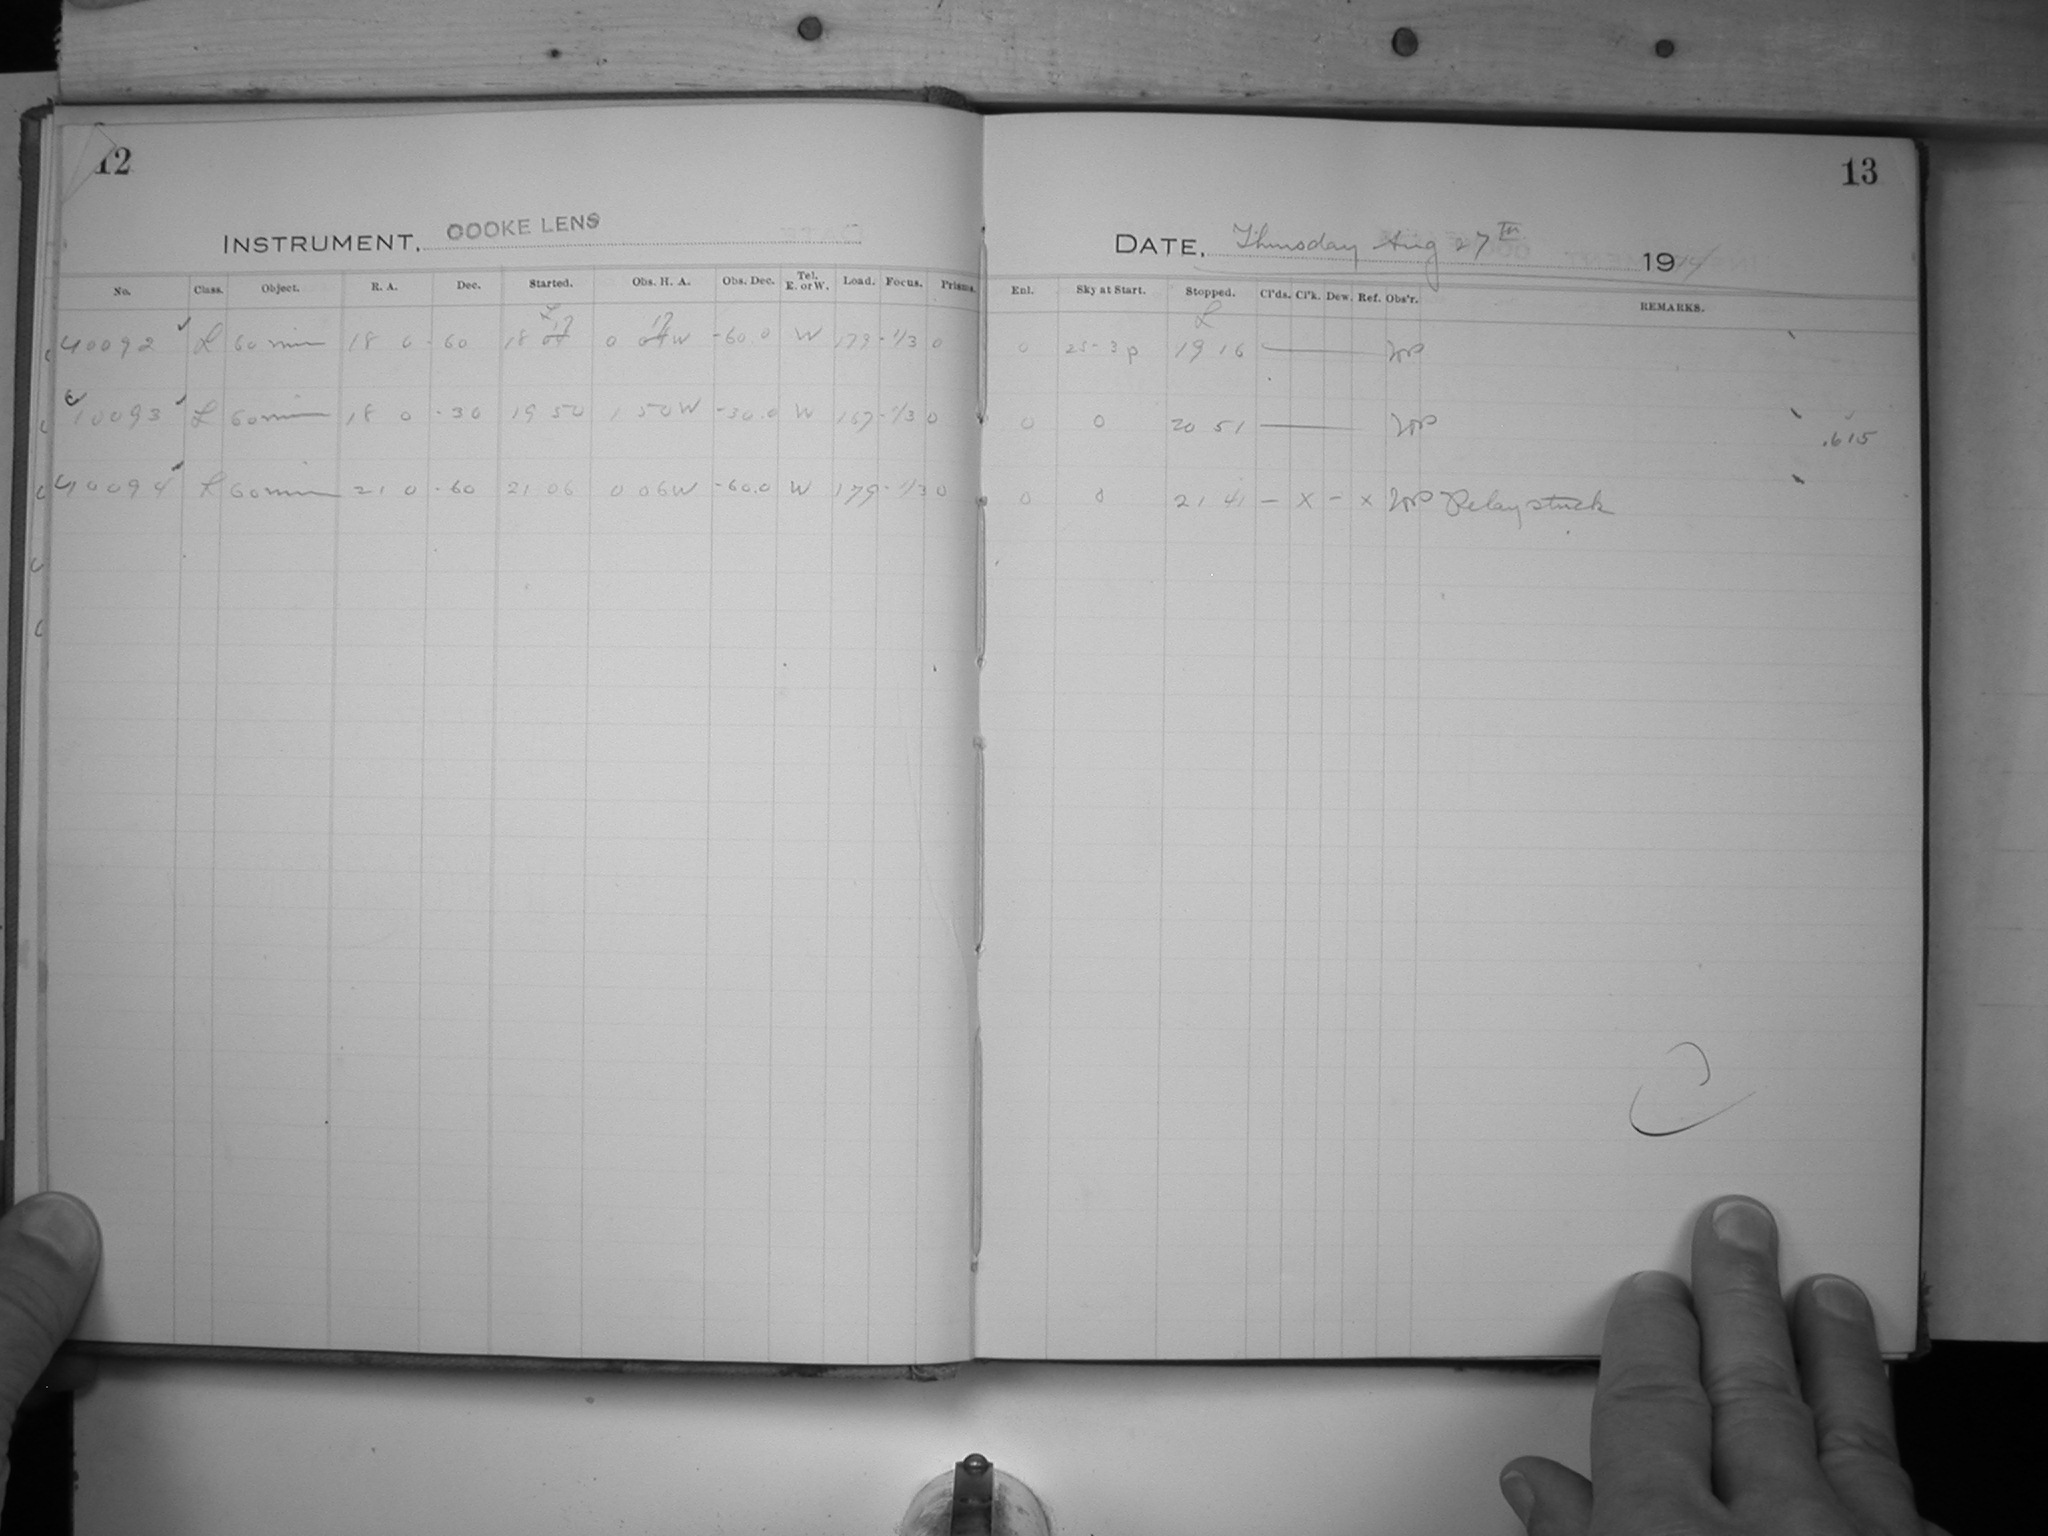 12
INSTRUMENT, COOKE LENS
No. Class. Object. R. A. Dec. Started. Obs. H. A. Obs. Dec. Tel. E. or W. Load. Focus. Prisms.
40092 L 60 min 18 0 -60 18 17 0 17 W -60.0 W 179 -1/3 0
10093 L 60 min 18 0 -30 19 50 1 50 W -30.0 W 167 -1/3 0
40094 L 60 min 21 0 -60 21 06 0 06 W -60.0 W 179 -1/3 0
13
DATE, Thursday Aug 27th 1914
Enl. Sky at Start. Stopped. Cl'ds. Cl'k. Dew. Ref. Obs'r. REMARKS.
0 25-3p 19 16
0 0 20 51 .615
0 0 21 41 – x – x Relay stuck